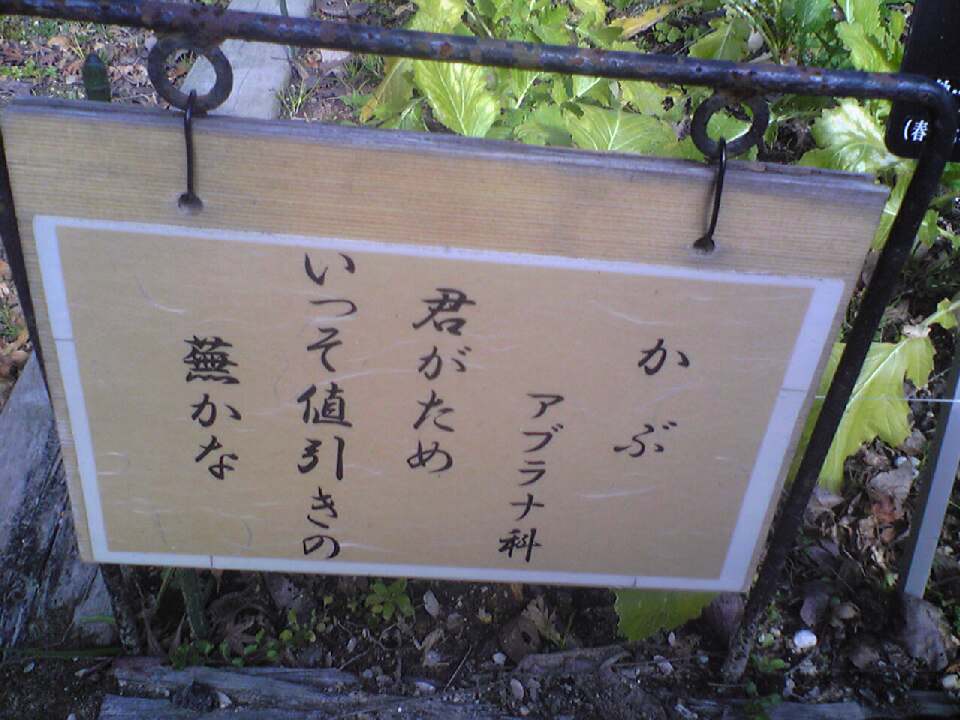 かぶ
アブラナ科
君がため
いっそ値引きの
蕪かな
(春